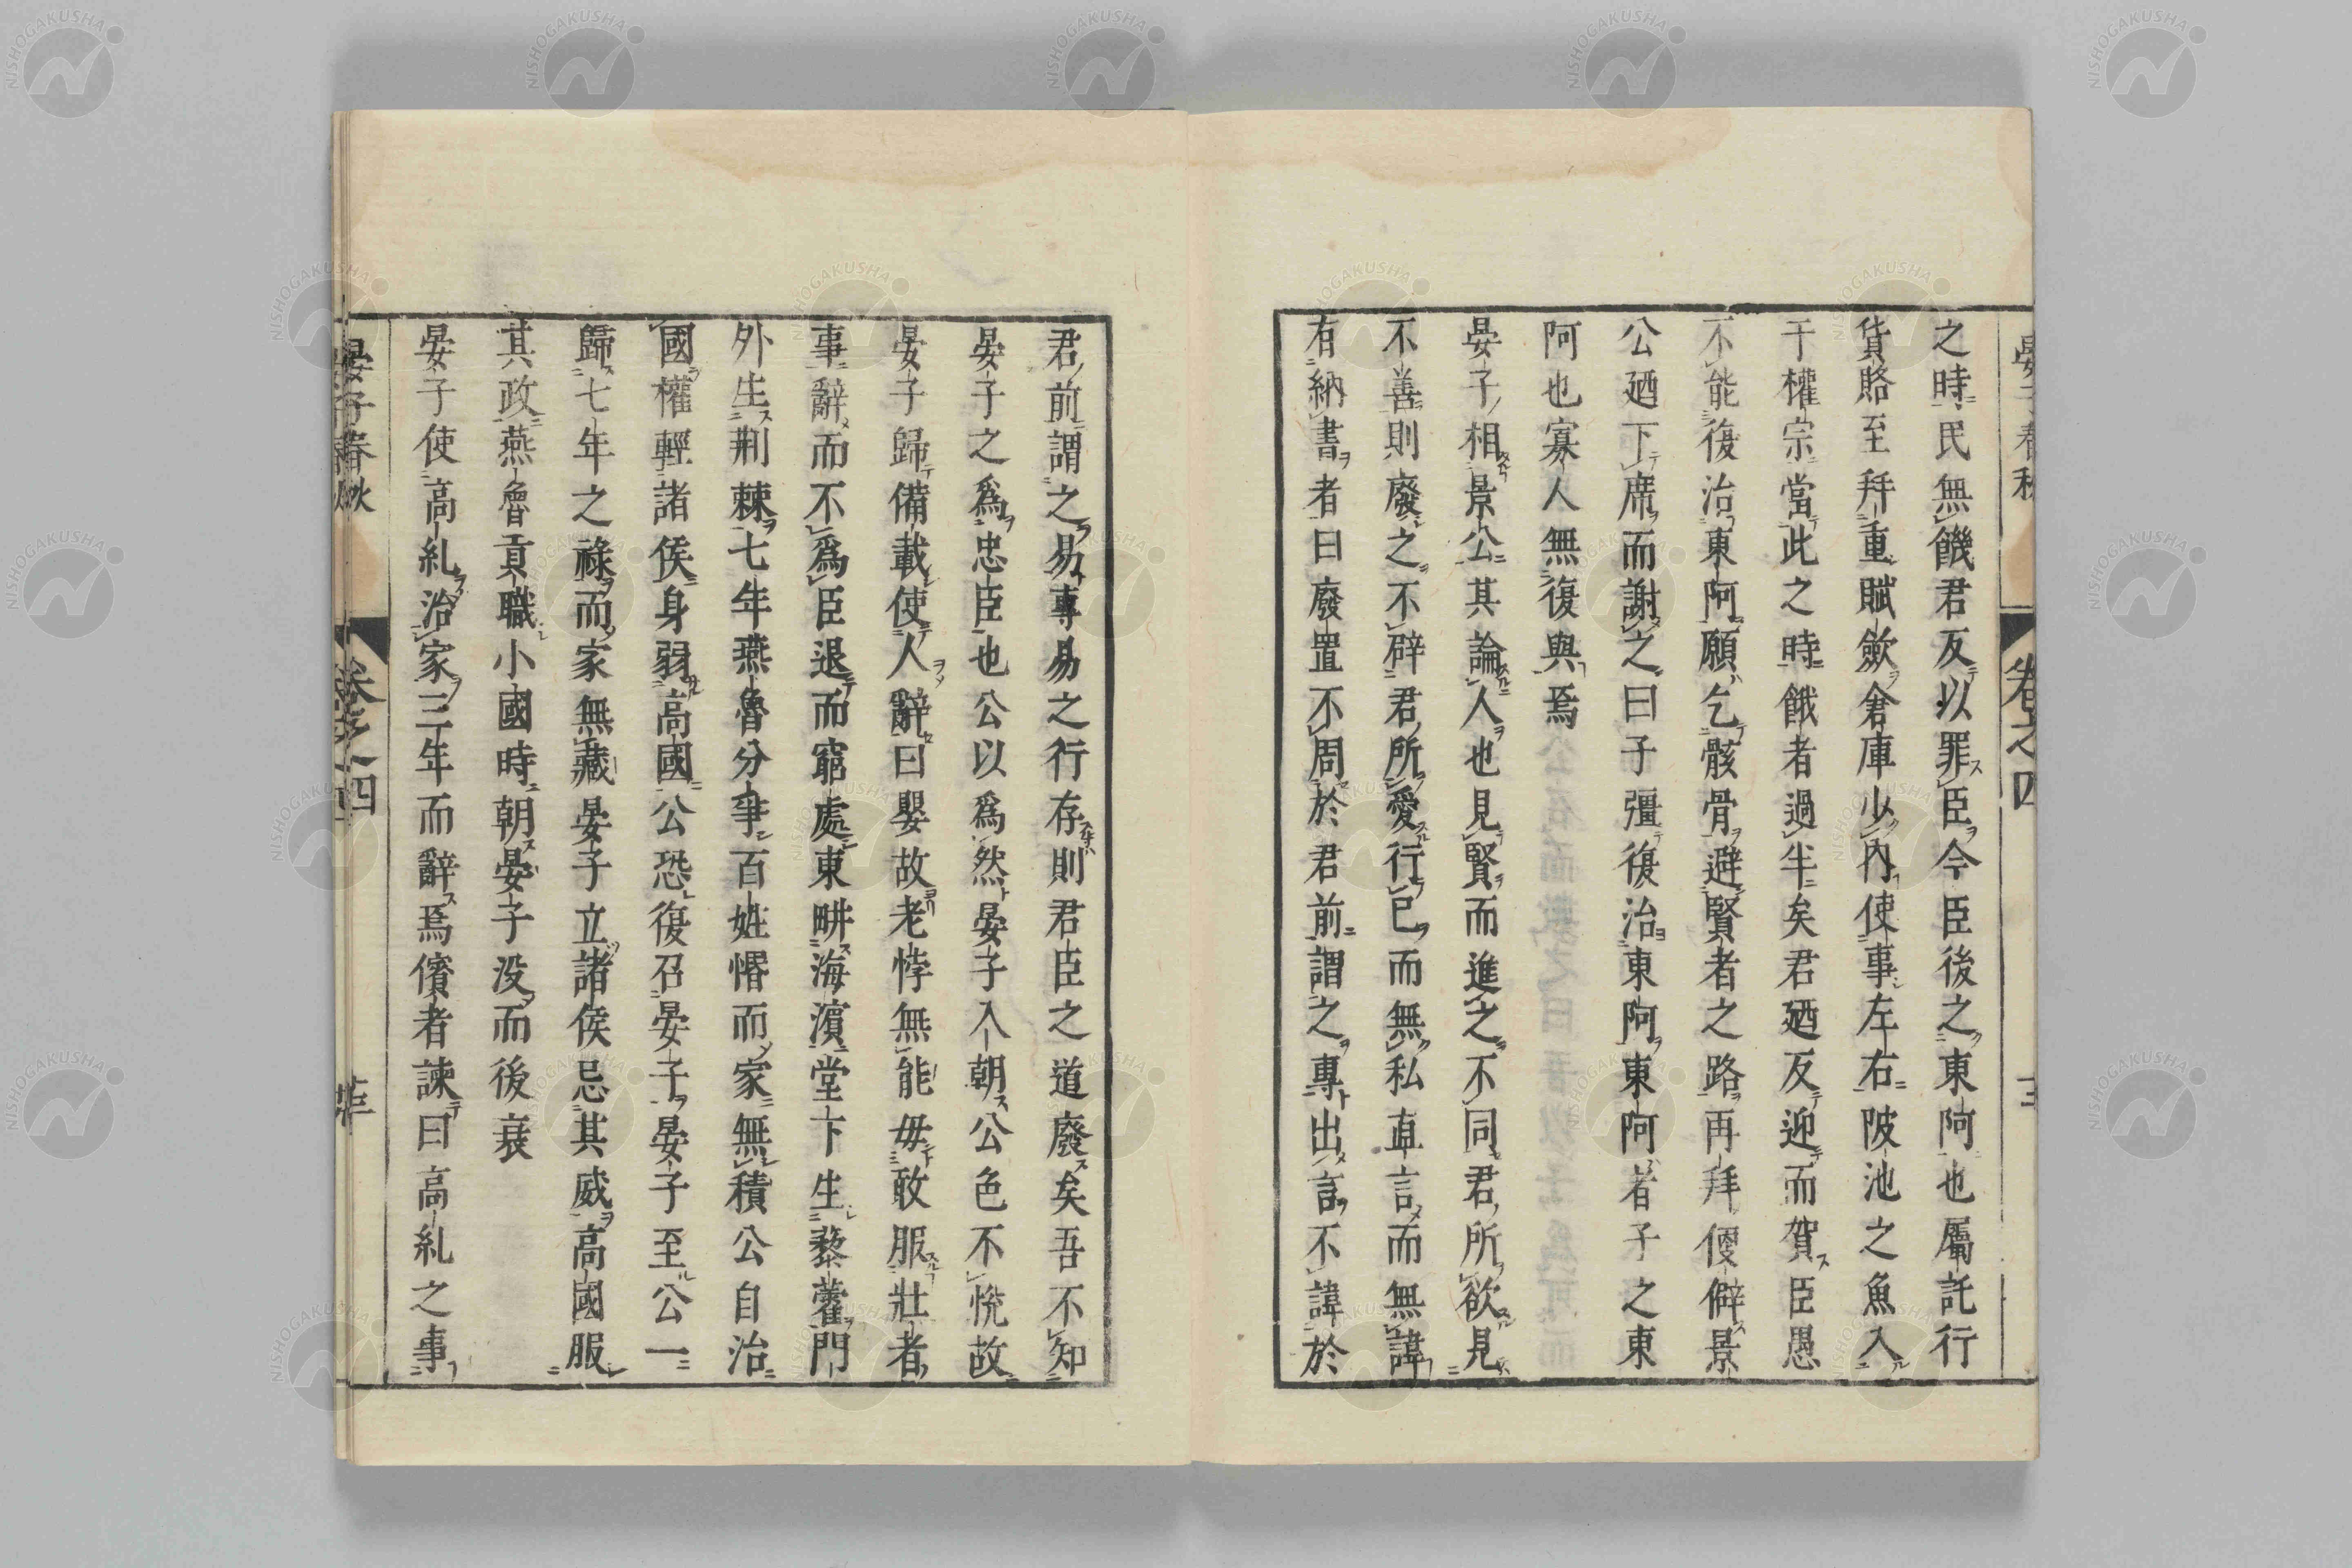 之時民無饑君反以罪臣今臣後之東阿也屬託行
貨賂至拜重賦斂倉庫少內使事左右陂池之魚入
于權宗當此之時餓者過半矣君廼反迎而賀臣愚
不能復治東阿願乞骸骨避賢者之路再拜便僻景
公廼下席而謝之曰子彊復治東阿東阿者子之東
阿也寡人無復與焉
晏子相景公其論人也見賢而進之不同君所欲見
不善則廢之不辟君所愛行己而無私直言而無諱
有納書者曰廢置不周於君前謂之專出言不諱於
君前謂之易專易之行存則君臣之道廢矣吾不知
晏子之爲忠臣也公以爲然晏子入朝公色不悅故
晏子歸備載使人辭曰嬰故老悖無能毋敢服壯者
事辭而不爲臣退而窮處東畊海濵堂下生藜藿門
外生荆棘七年燕魯分爭百姓惽而家無積公自治
國權輕諸侯身弱高國公恐復召晏子晏子至公一
歸七年之祿而家無藏晏子立諸侯忌其威高國服
其政燕魯貢職小國時朝晏子没而後衰
晏子使高糺治家三年而辭焉儐者諫曰高糺之事
晏子春秋
卷之四